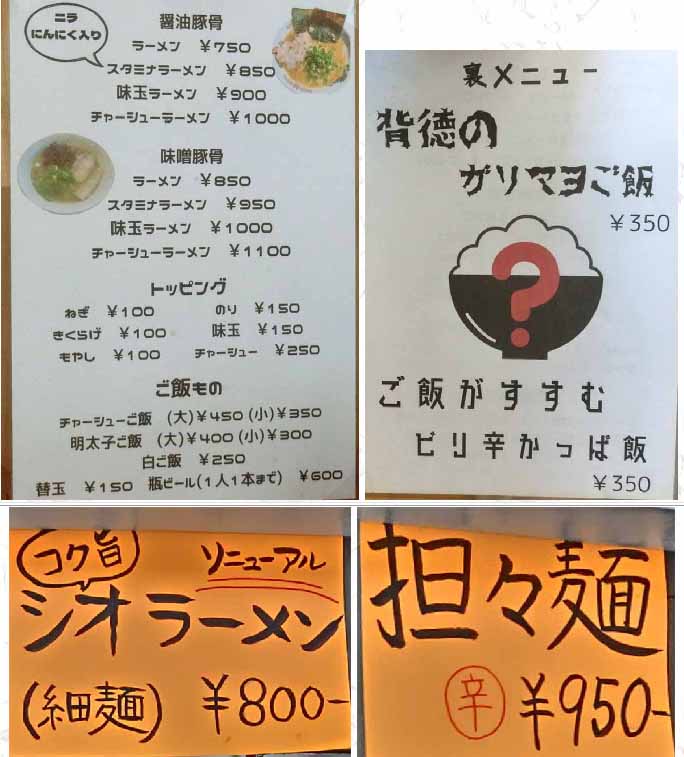 ニラ
にんにく入り
醤油豚骨
ラーメン ￥750
スタミナラーメン ￥850
味玉ラーメン ￥900
チャーシューラーメン ￥1000
味噌豚骨
ラーメン ￥850
スタミナラーメン ￥950
味玉ラーメン ￥1000
チャーシューラーメン ￥1100
トッピング
ねぎ ￥100 のり ￥150
きくらげ ￥100 味玉 ￥150
もやし ￥100 チャーシュー ￥250
ご飯もの
チャーシューご飯 (大)￥450 (小)￥350
明太子ご飯 (大)￥400 (小)￥300
白ご飯 ￥250
替玉 ￥150 瓶ビール(1人1本まで) ￥600
裏メニュー
背徳の
ガリマヨご飯
￥350
?
ご飯がすすむ
ピリ辛かっぱ飯
￥350
コク旨
リニューアル
シオラーメン
(細麺) ￥800-
担々麺
辛 ￥950-